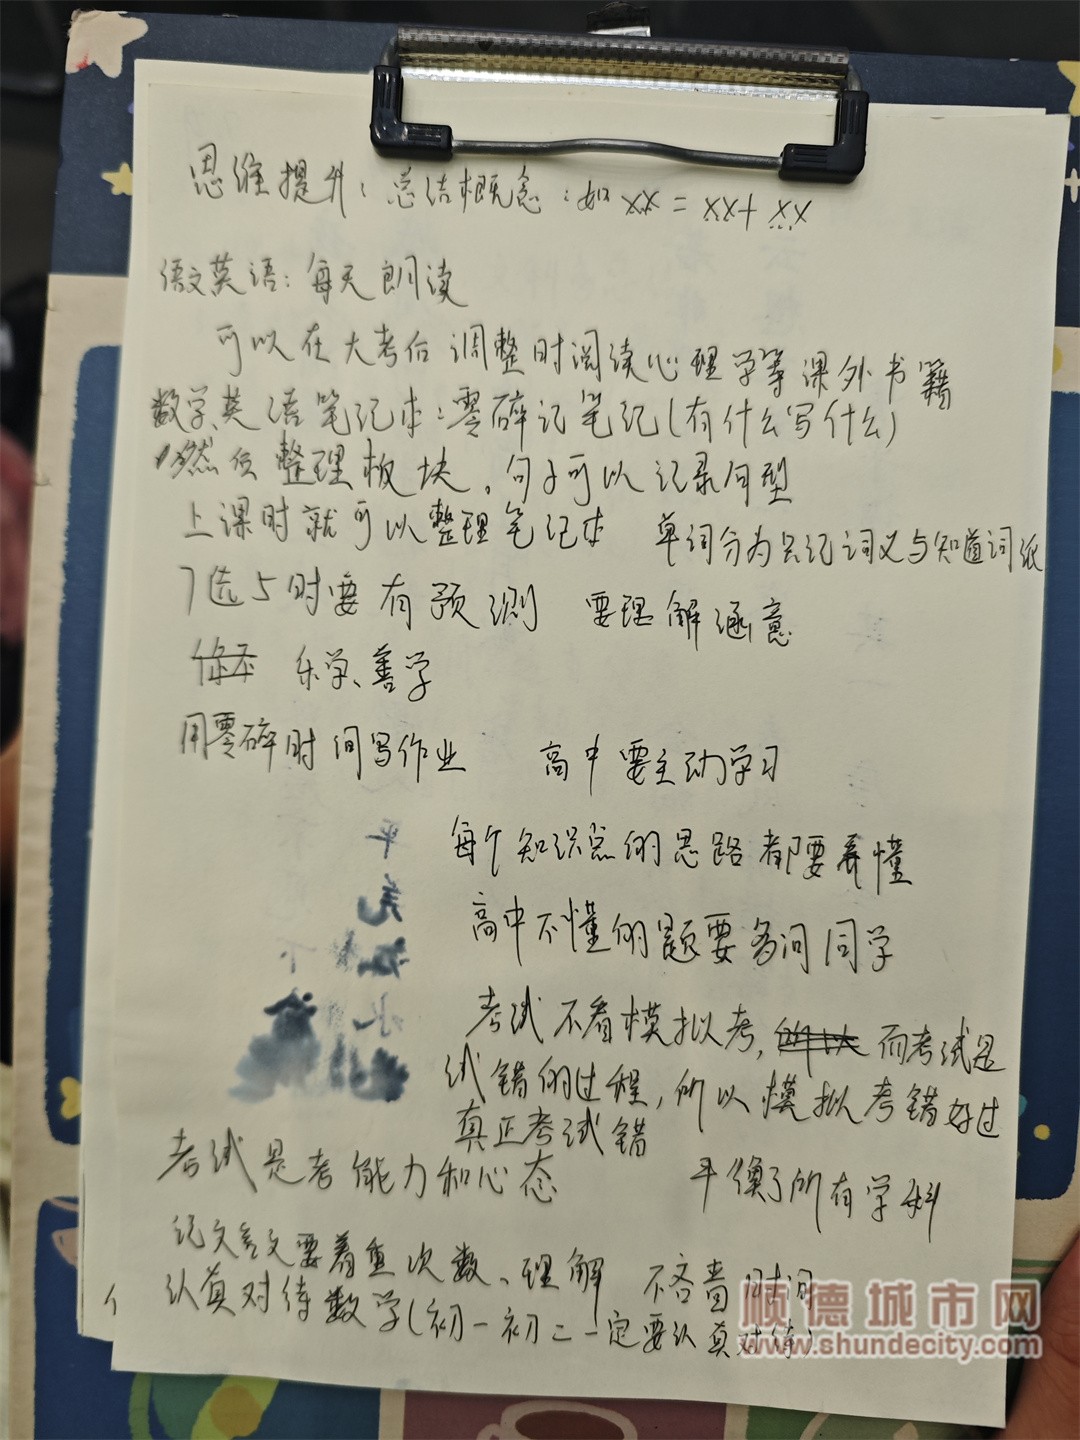 思维提升：总结概念：如xx=xx+xx
语文英语：每天朗读
可以在大考后调整时阅读心理学等课外书籍
数学英语笔记本：零碎记笔记（有什么写什么）
然后整理板块。句子可以记录句型
上课时就可以整理笔记本 单词分为只记词义与知道词派
7选5时要有预测 要理解涵意
乐学、善学
用零碎时间写作业 高中要主动学习
每个知识点的思路都要弄懂
高中不懂的题要多问同学
考试不看模拟考，而考试是
试错的过程，所以模拟考错好过
真正考试错
考试是考能力和心态 平衡了所有学科
记文言文要着重次数、理解 不吝啬时间
认真对待数学（初一初二一定要认真对待）
顺德城市网
www.shundecity.com